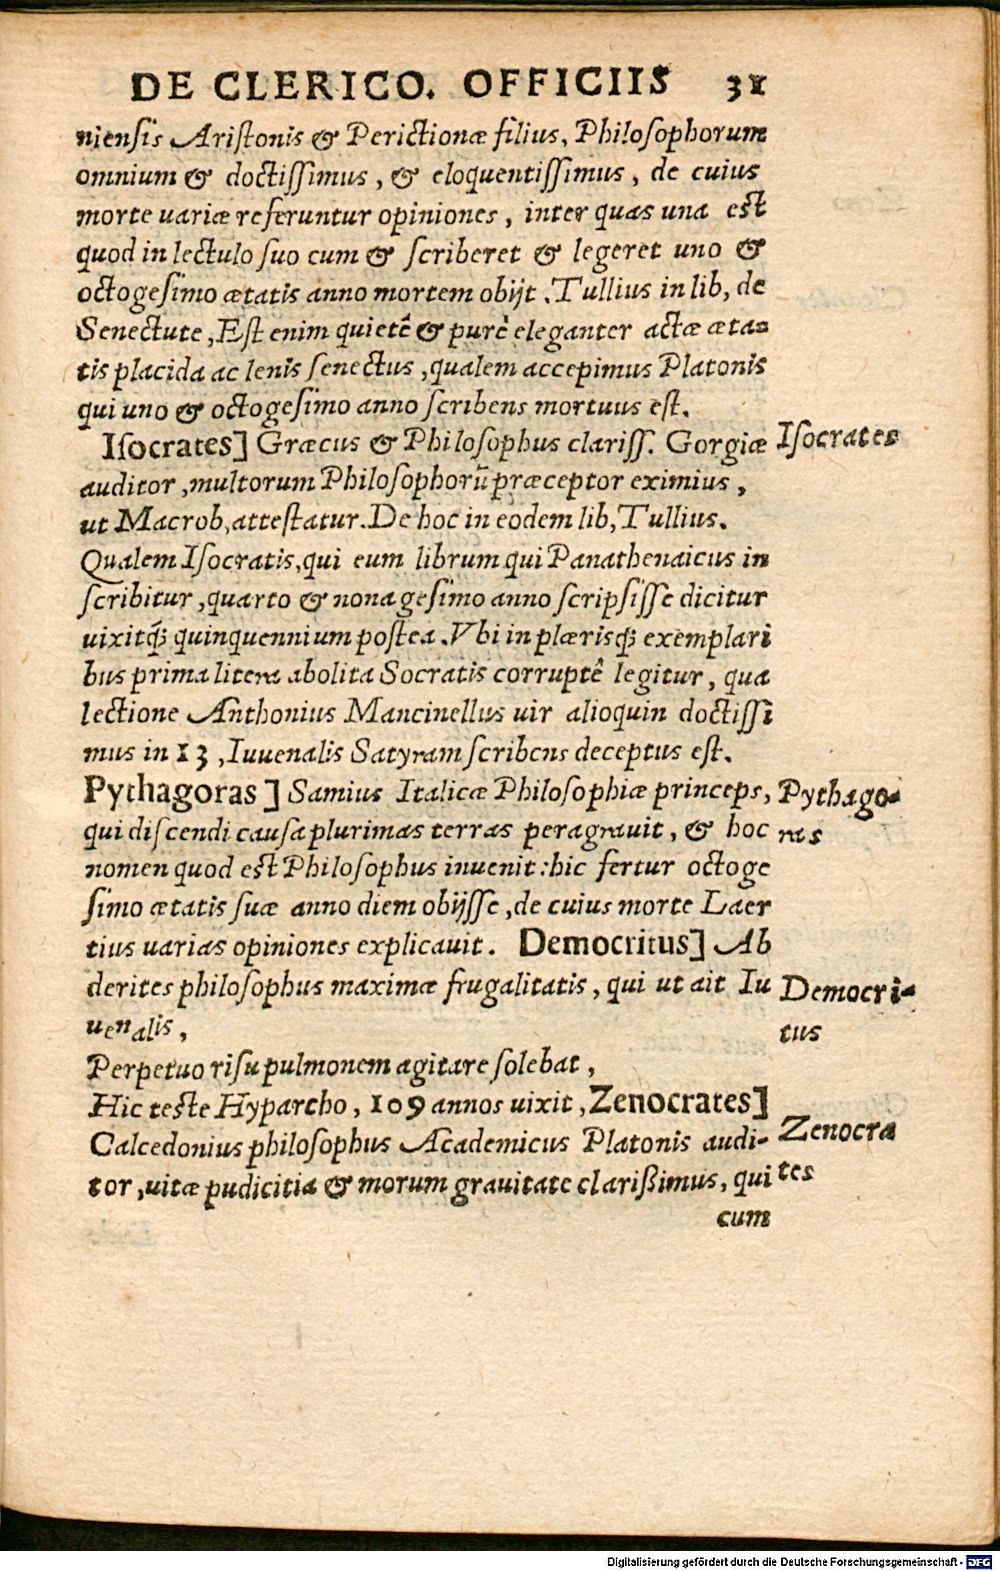 DE CLERICO. OFFICIIS 31
niensis Aristonis & Perictionæ filius, Philosophorum
omnium & doctissimus, & eloquentissimus, de cuius
morte uariæ referuntur opiniones, inter quas una est
quod in lectulo suo cum & scriberet & legeret uno &
octogesimo ætatis anno mortem obijt. Tullius in lib, de
Senectute, Est enim quietê & purê eleganter actæ æta=
tis placida ac lenis senectus, qualem accepimus Platonis
qui uno & octogesimo anno scribens mortuus est.
Isocrates] Græcus & Philosophus clariss. Gorgiæ
Isocrates
auditor, multorum Philosophorũ præceptor eximius,
ut Macrob, attestatur. De hoc in eodem lib, Tullius.
Qualem Isocratis, qui eum librum qui Panathenaicus in
scribitur, quarto & nonagesimo anno scripsisse dicitur
uixitq́; quinquennium postea. Vbi in plærisq́; exemplari
bus prima litera abolita Socratis corruptê legitur, qua
lectione Anthonius Mancinellus uir alioquin doctissi
mus in 13, Iuuenalis Satyram scribens deceptus est.
Pythagoras] Samius Italicæ Philosophiæ princeps,
Pythago-
qui discendi causa plurimas terras peragrauit, & hoc
ras
nomen quod est Philosophus inuenit: hic fertur octoge
simo ætatis suæ anno diem obijsse, de cuius morte Laer
tius uarias opiniones explicauit. Democritus] Ab
derites philosophus maximæ frugalitatis, qui ut ait Iu
Democri-
uenalis,
tus
Perpetuo risu pulmonem agitare solebat,
Hic teste Hyparcho, 109 annos uixit, Zenocrates]
Calcedonius philosophus Academicus Platonis audi-
Zenocra
tor, uitæ pudicitia & morum grauitate clarißimus, qui
tes
cum
Digitalisierung gefördert durch die Deutsche Forschungsgemeinschaft - DFG